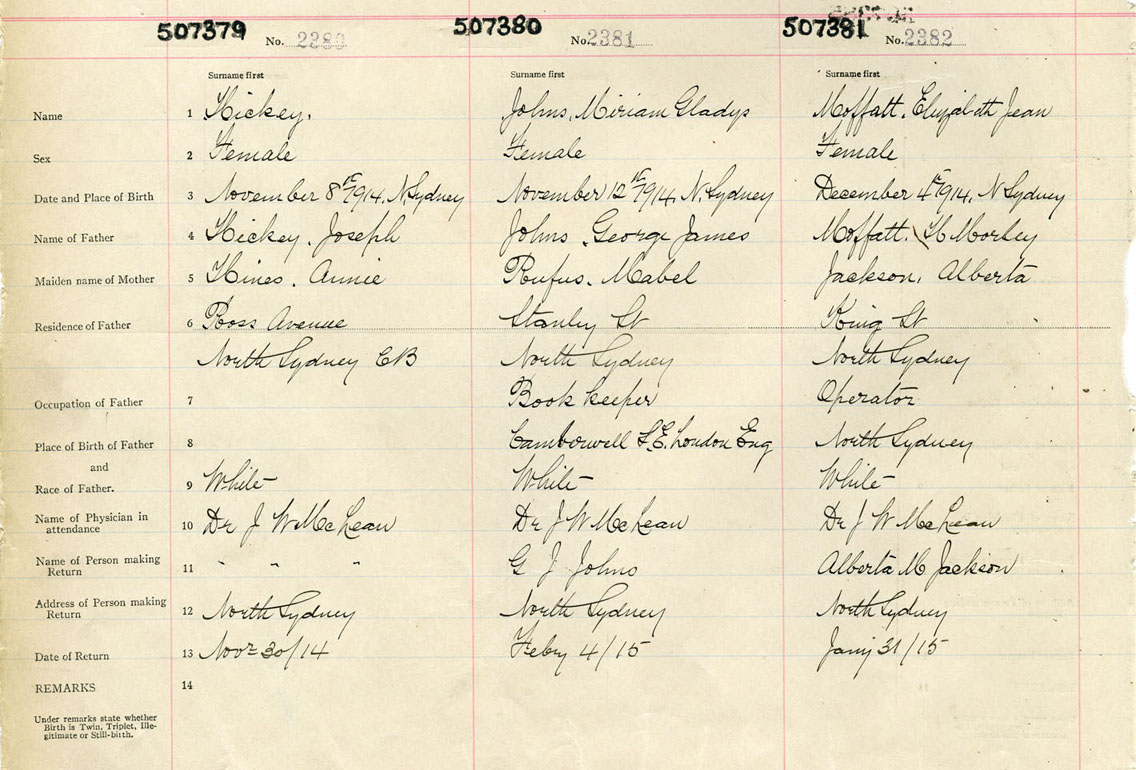 507379 No. 2380 507380 No. 2381 507381 No. 2382
Surname first Surname first Surname first
Name 1 Hickey. Johns, Miriam Gladys Moffatt. Elizabeth Jean
Sex 2 Female Female Female
Date and Place of Birth 3 November 8th 1914, N Sydney November 12th 1914, N. Sydney December 4th 1914, N Sydney
Name of Father 4 Hickey. Joseph Johns, George James Moffatt. H Morley
Maiden name of Mother 5 Hines. Annie Rufus. Mabel Jackson, Alberta
Residence of Father 6 Ross Avenue Stanley St King St
North Sydney CB North Sydney North Sydney
Occupation of Father 7 Book keeper Operator
Place of Birth of Father 8 Camberwell S.E. London Eng North Sydney
and
Race of Father. 9 White White White
Name of Physician in
attendance 10 Dr J W McLean Dr J W McLean Dr J W McLean
Name of Person making
Return 11 " " " G J Johns Alberta M Jackson
Address of Person making
Return 12 North Sydney North Sydney North Sydney
Date of Return 13 Novr 30/14 Feby 4/15 Jany 31/15
REMARKS 14
Under remarks state whether
Birth is Twin, Triplet, Ille-
gitimate or Still-birth.